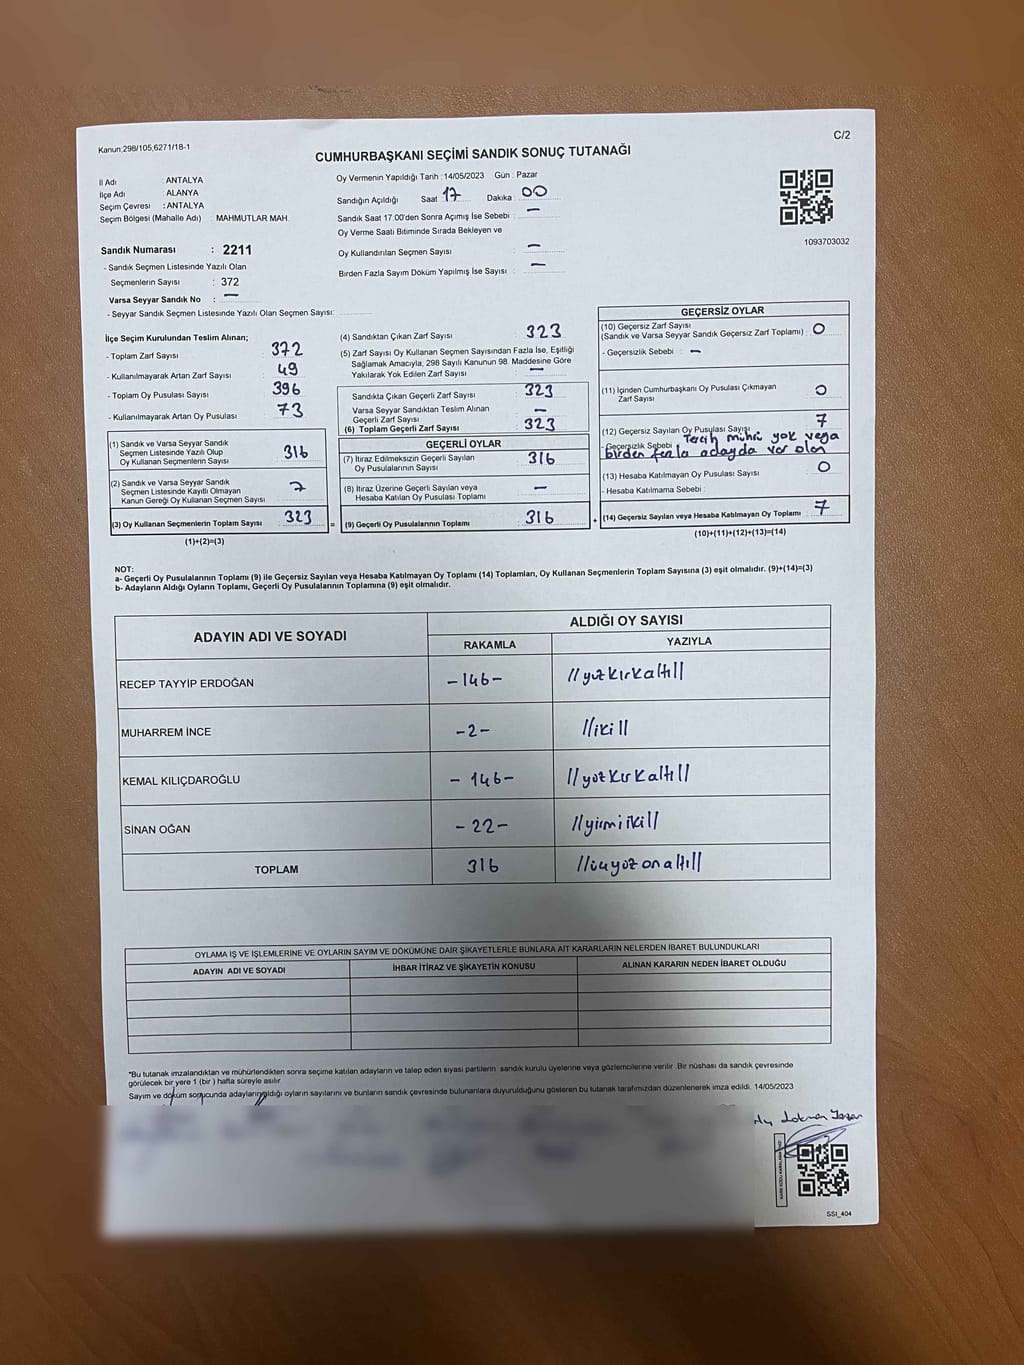 C/2
Kanun:298/105,6271/18-1
CUMHURBAŞKANI SEÇİMİ SANDIK SONUÇ TUTANAĞI
İl Adı : ANTALYA
İlçe Adı : ALANYA
Seçim Çevresi : ANTALYA
Seçim Bölgesi (Mahalle Adı) : MAHMUTLAR MAH.
Oy Vermenin Yapıldığı Tarih :14/05/2023 Gün : Pazar
Sandığın Açıldığı Saat 17 Dakika : 00
Sandık Saat 17:00'den Sonra Açımış İse Sebebi : —
Oy Verme Saati Bitiminde Sırada Bekleyen ve
Oy Kullandırılan Seçmen Sayısı : —
Birden Fazla Sayım Döküm Yapılmış İse Sayısı : —
1093703032
Sandık Numarası : 2211
- Sandık Seçmen Listesinde Yazılı Olan
Seçmenlerin Sayısı : 372
Varsa Seyyar Sandık No : —
- Seyyar Sandık Seçmen Listesinde Yazılı Olan Seçmen Sayısı:
İlçe Seçim Kurulundan Teslim Alınan;
- Toplam Zarf Sayısı : 372
- Kullanılmayarak Artan Zarf Sayısı : 49
- Toplam Oy Pusulası Sayısı : 396
- Kullanılmayarak Artan Oy Pusulası : 73
(1) Sandık ve Varsa Seyyar Sandık
Seçmen Listesinde Yazılı Olup
Oy Kullanan Seçmenlerin Sayısı : 316
(2) Sandık ve Varsa Seyyar Sandık
Seçmen Listesinde Kayıtlı Olmayan
Kanun Gereği Oy Kullanan Seçmen Sayısı : 7
(3) Oy Kullanan Seçmenlerin Toplam Sayısı : 323 =
(1)+(2)=(3)
(4) Sandıktan Çıkan Zarf Sayısı : 323
(5) Zarf Sayısı Oy Kullanan Seçmen Sayısından Fazla İse, Eşitliği
Sağlamak Amacıyla, 298 Sayılı Kanunun 98. Maddesine Göre
Yakılarak Yok Edilen Zarf Sayısı : —
Sandıkta Çıkan Geçerli Zarf Sayısı : 323
Varsa Seyyar Sandıktan Teslim Alınan
Geçerli Zarf Sayısı : —
(6) Toplam Geçerli Zarf Sayısı : 323
GEÇERLİ OYLAR
(7) İtiraz Edilmeksizin Geçerli Sayılan
Oy Pusulalarının Sayısı : 316
(8) İtiraz Üzerine Geçerli Sayılan veya
Hesaba Katılan Oy Pusulası Toplamı : —
(9) Geçerli Oy Pusulalarının Toplamı : 316 +
GEÇERSİZ OYLAR
(10) Geçersiz Zarf Sayısı
(Sandık ve Varsa Seyyar Sandık Geçersiz Zarf Toplamı) : 0
- Geçersizlik Sebebi : —
(11) İçinden Cumhurbaşkanı Oy Pusulası Çıkmayan
Zarf Sayısı : 0
(12) Geçersiz Sayılan Oy Pusulası Sayısı : 7
- Geçersizlik Sebebi : Tercih mührü yok veya
birden fazla adayda var olan
(13) Hesaba Katılmayan Oy Pusulası Sayısı : 0
- Hesaba Katılmama Sebebi :
(14) Geçersiz Sayılan veya Hesaba Katılmayan Oy Toplamı : 7
(10)+(11)+(12)+(13)=(14)
NOT:
a- Geçerli Oy Pusulalarının Toplamı (9) ile Geçersiz Sayılan veya Hesaba Katılmayan Oy Toplamı (14) Toplamları, Oy Kullanan Seçmenlerin Toplam Sayısına (3) eşit olmalıdır. (9)+(14)=(3)
b- Adayların Aldığı Oyların Toplamı, Geçerli Oy Pusulalarının Toplamına (9) eşit olmalıdır.
ADAYIN ADI VE SOYADI ALDIĞI OY SAYISI
RAKAMLA YAZIYLA
RECEP TAYYİP ERDOĞAN -146- //yüzkırkaltı//
MUHARREM İNCE -2- //iki//
KEMAL KILIÇDAROĞLU -146- //yüzkırkaltı//
SİNAN OĞAN -22- //yirmiiki//
TOPLAM 316 //üçyüzonaltı//
OYLAMA İŞ VE İŞLEMLERİNE VE OYLARIN SAYIM VE DÖKÜMÜNE DAİR ŞİKAYETLERLE BUNLARA AİT KARARLARIN NELERDEN İBARET BULUNDUKLARI
ADAYIN ADI VE SOYADI İHBAR İTİRAZ VE ŞİKAYETİN KONUSU ALINAN KARARIN NEDEN İBARET OLDUĞU
*Bu tutanak imzalandıktan ve mühürlendikten sonra seçime katılan adayların ve talep eden siyasi partilerin sandık kurulu üyelerine veya gözlemcilerine verilir. Bir nüshası da sandık çevresinde
görülecek bir yere 1 (bir ) hafta süreyle asılır.
Sayım ve döküm sonucunda adayların aldığı oyların sayılarını ve bunların sandık çevresinde bulunanlara duyurulduğunu gösteren bu tutanak tarafımızdan düzenlenerek imza edildi. 14/05/2023
SSI_404